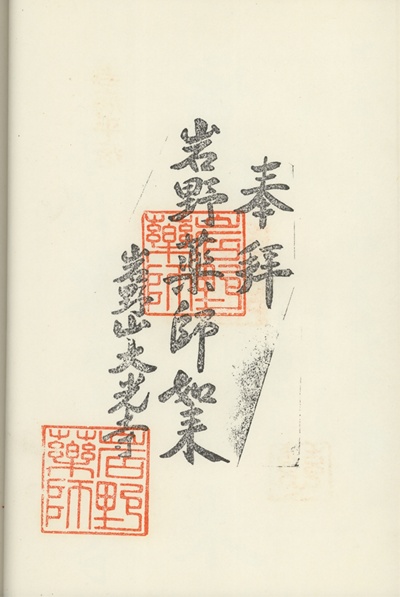 奉拜
岩野薬師如来
岩野山大光寺
岩野薬師
岩野薬師